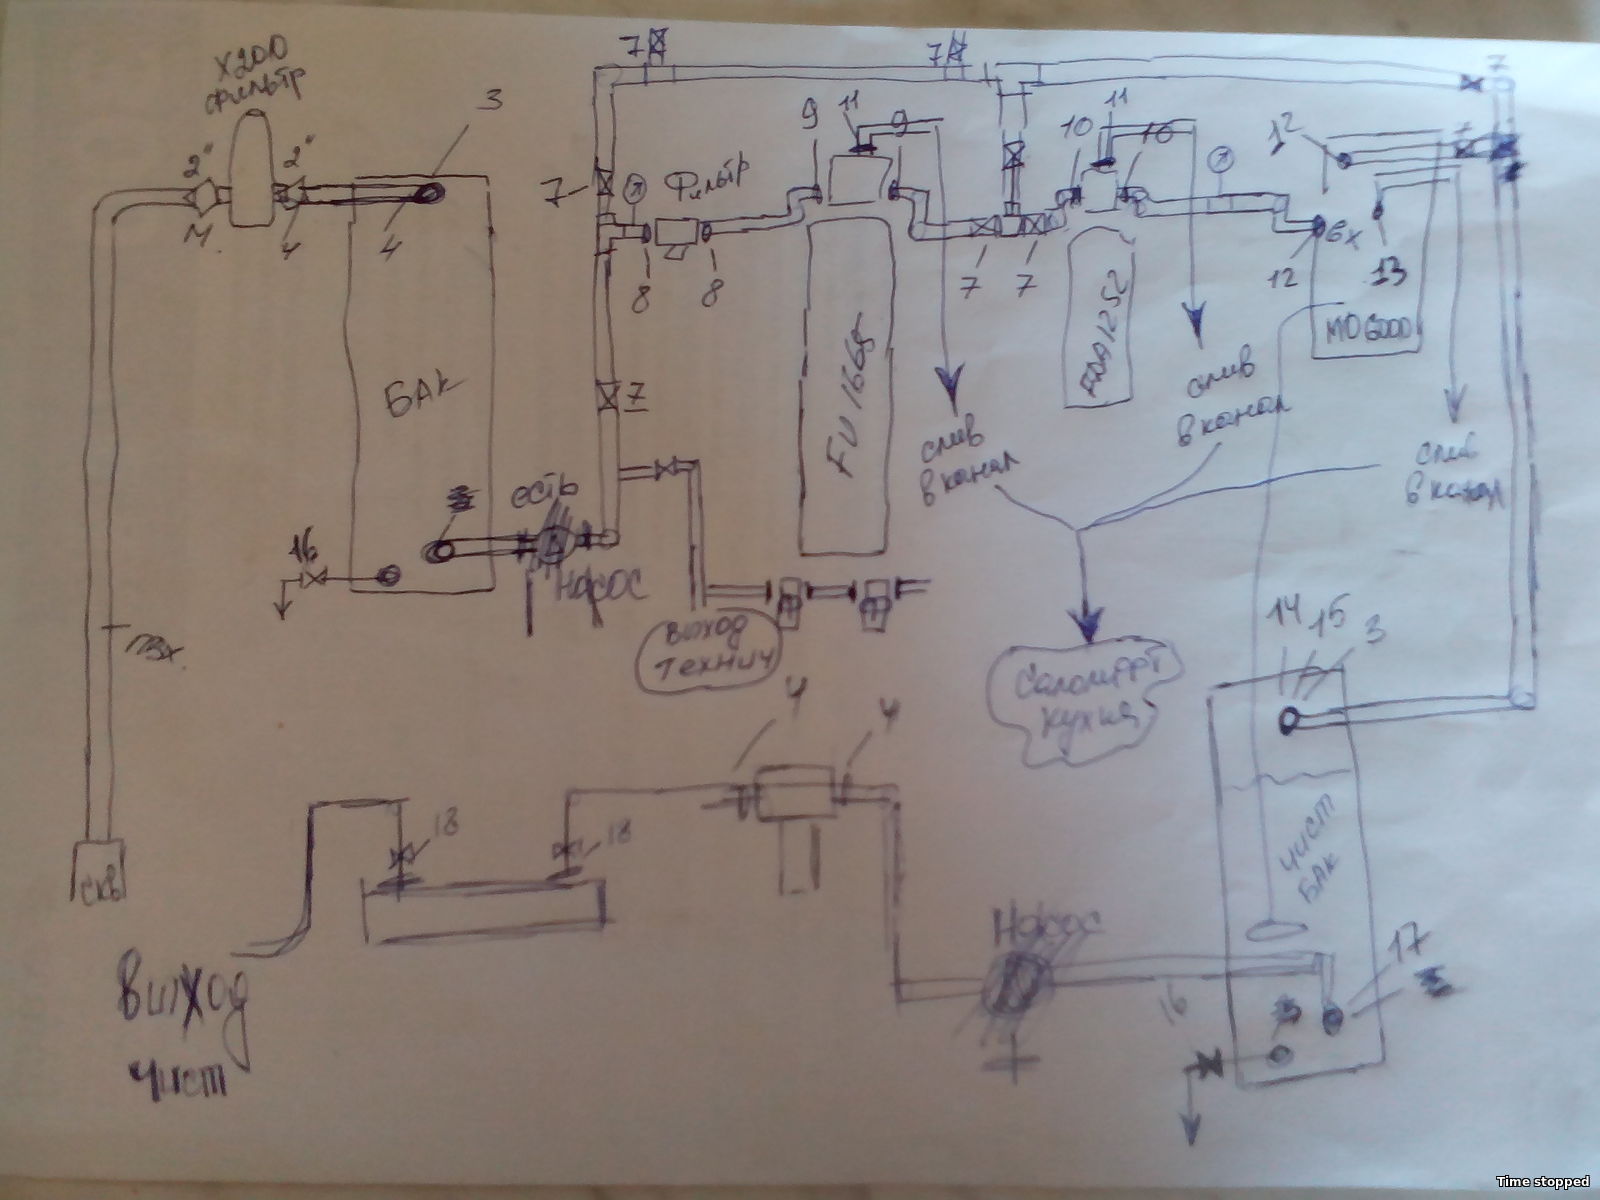 7
7
7
Х200
фильтр
3
11
11
9
9
10
10
12
2"
2"
7
Фильтр
4
4
8
8
7
7
12
вх
13
МО6000
БАК
7
слив
в канал
слив
в канал
слив
в канал
есть
16
Насос
выход
технич
14
15
3
кухня
4
4
чист
БАК
18
18
скв
Насос
17
16
Выход
чист
Time stopped